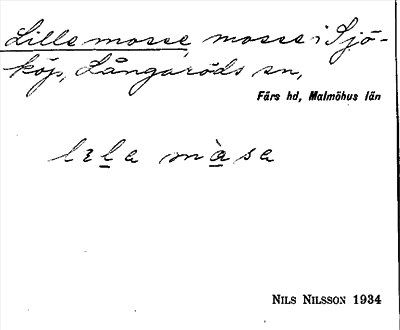 Lille mosse, mosse i Sjö-
köp, Långaröds sn,
Färs hd, Malmöhus län
lıla màsa
NILS NILSSON 1934